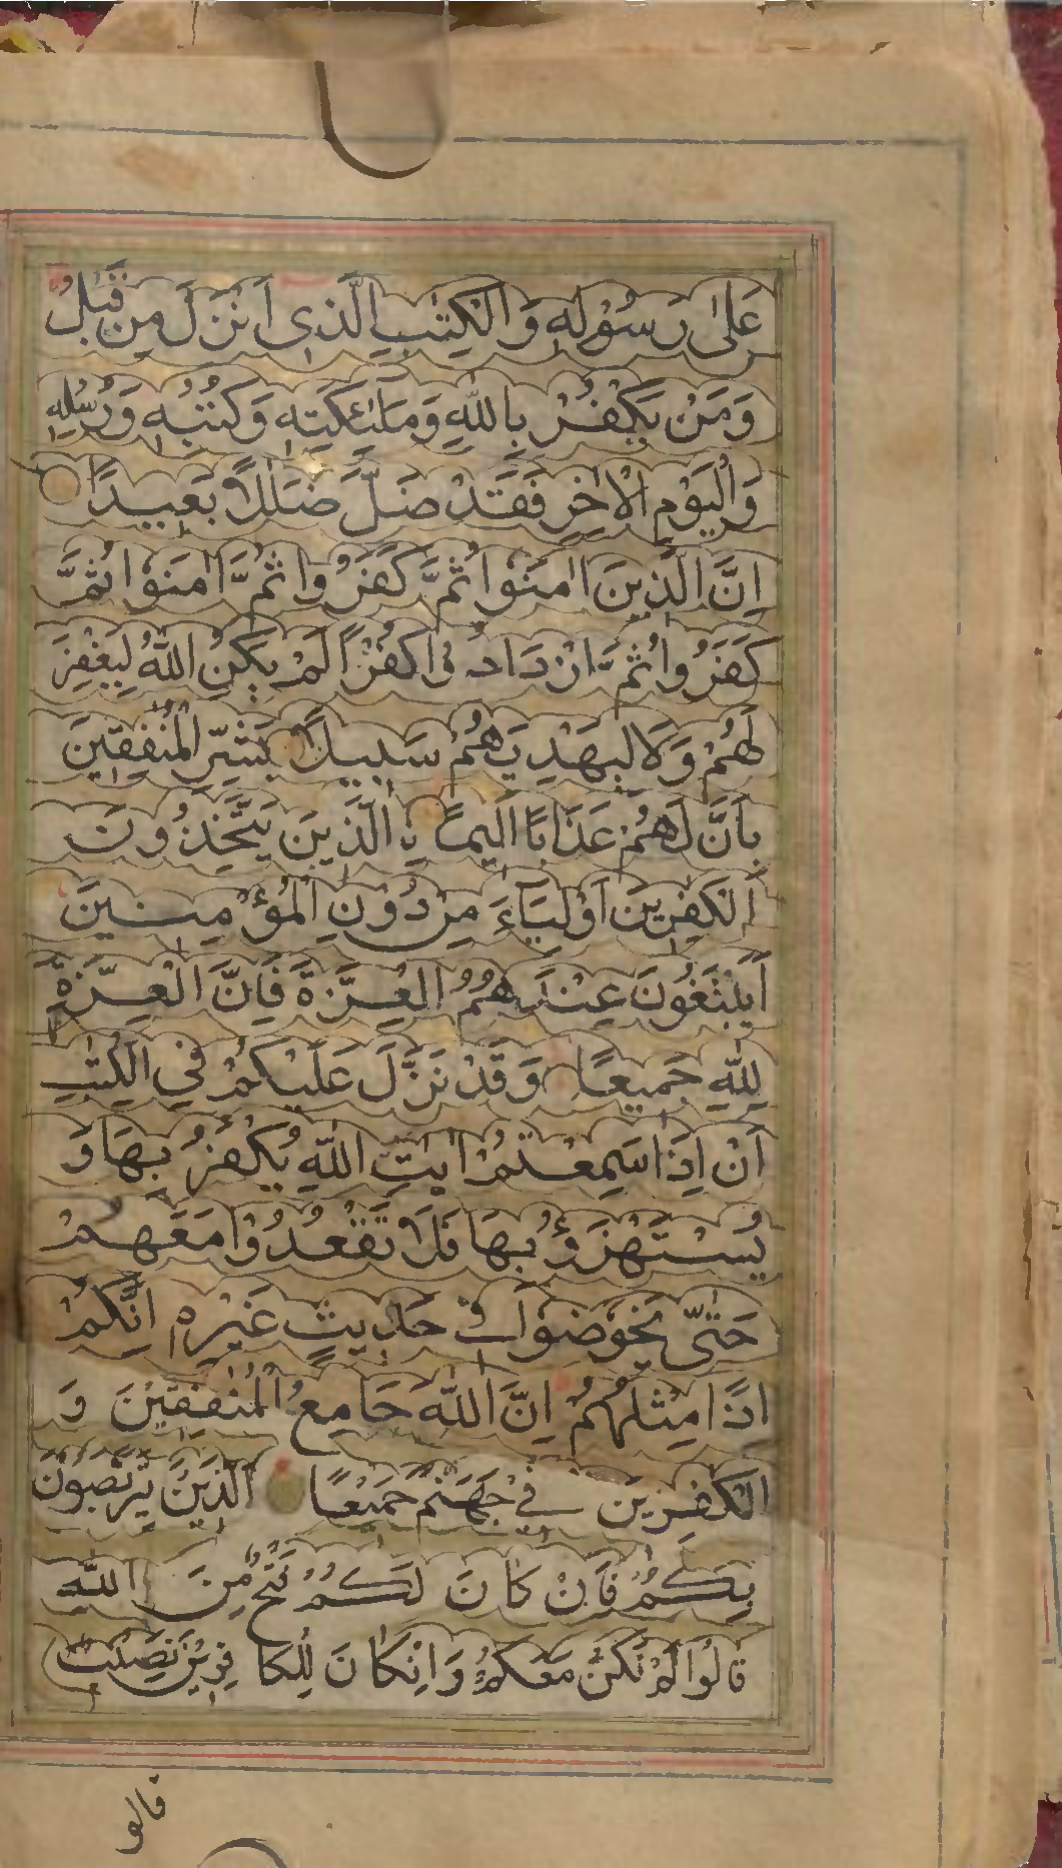 عَلٰى رَسُوْلِهٖ وَالْكِتٰبِ الَّذِى اَنْزَلَ مِنْ قَبْلُ
وَمَنْ يَكْفُرْ بِاللّٰهِ وَمَلٰٓئِكَتِهٖ وَكُتُبِهٖ وَرُسُلِهٖ
وَالْيَوْمِ الْاٰخِرِ فَقَدْ ضَلَّ ضَلٰلًاۢ بَعِيْدًا
اِنَّ الَّذِيْنَ اٰمَنُوْا ثُمَّ كَفَرُوا ثُمَّ اٰمَنُوْا ثُمَّ
كَفَرُوا ثُمَّ ازْدَادُوْا كُفْرًا لَمْ يَكُنِ اللّٰهُ لِيَغْفِرَ
لَهُمْ وَلَا لِيَهْدِيَهُمْ سَبِيْلًا بَشِّرِ الْمُنٰفِقِيْنَ
بِاَنَّ لَهُمْ عَذَابًا اَلِيْمًا ۙ الَّذِيْنَ يَتَّخِذُوْنَ
الْكٰفِرِيْنَ اَوْلِيَآءَ مِنْ دُوْنِ الْمُؤْمِنِيْنَ
اَيَبْتَغُوْنَ عِنْدَهُمُ الْعِزَّةَ فَاِنَّ الْعِزَّةَ
لِلّٰهِ جَمِيْعًا وَقَدْ نَزَّلَ عَلَيْكُمْ فِى الْكِتٰبِ
اَنْ اِذَا سَمِعْتُمْ اٰيٰتِ اللّٰهِ يُكْفَرُ بِهَا وَ
يُسْتَهْزَؤُ بِهَا فَلَا تَقْعُدُوْا مَعَهُمْ
حَتّٰى يَخُوْضُوْا فِيْ حَدِيْثٍ غَيْرِهٖ اِنَّكُمْ
اِذًا مِثْلُهُمْ اِنَّ اللّٰهَ جَامِعُ الْمُنٰفِقِيْنَ وَ
الْكٰفِرِيْنَ فِيْ جَهَنَّمَ جَمِيْعًا الَّذِيْنَ يَتَرَبَّصُوْنَ
بِكُمْ فَاِنْ كَانَ لَكُمْ فَتْحٌ مِّنَ اللّٰهِ
قَالُوْا اَلَمْ نَكُنْ مَعَكُمْ وَاِنْ كَانَ لِلْكٰفِرِيْنَ نَصِيْبٌ
قالو